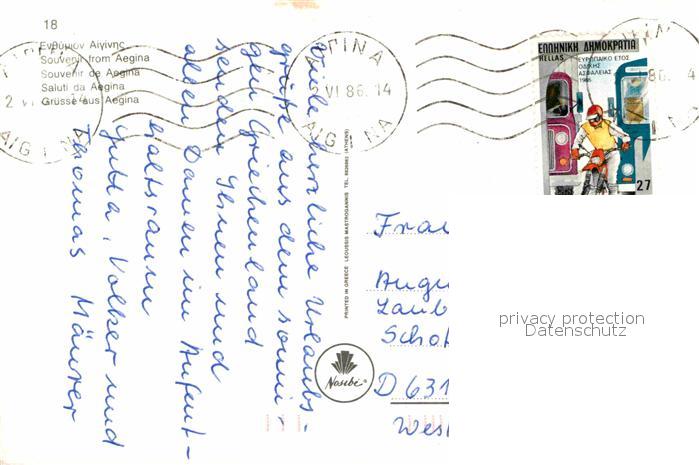 18
Ενθύμιον Αιγίνης
Souvenir from Aegina
Souvenir de Aegina
Saluti da Aegina
Grüsse aus Aegina
ΑΙΓΙΝΑ
VI 86. 14
AIGINA
ΕΛΛΗΝΙΚΗ ΔΗΜΟΚΡΑΤΙΑ
HELLAS
ΕΥΡΩΠΑΪΚΟ ΕΤΟΣ
ΟΔΙΚΗΣ
ΑΣΦΑΛΕΙΑΣ
1986
27
Viele herzliche Urlaubs-
grüße aus dem sonni-
gen Griechenland
senden Ihnen und
allen Damen im Aufent-
haltsraum
Jutta, Volker und
Thomas Mäurer
PRINTED IN GREECE LEOUSSIS MASTROGIANNIS TEL. (ATHENS)
Nosibi
Frau
Laub
D 631
West
privacy protection
Datenschutz